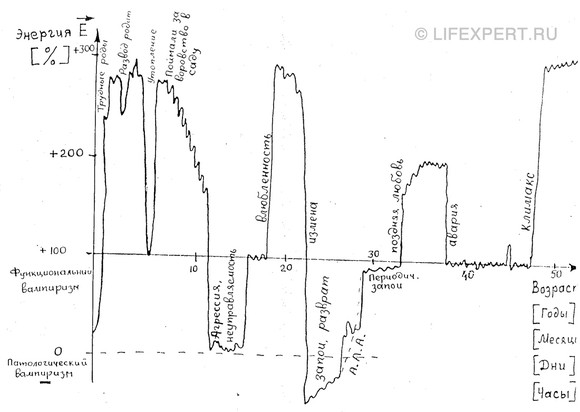 © LIFEXPERT.RU
Энергия E
[%]
+300
Трудные роды
Развод родит.
Утопление
Поймали за
воровство в
саду
+200
Влюбленность
измена
поздняя любовь
авария
Климакс
+100
Функциональный
вампиризм
10
20
30
40
50
Агрессия,
неуправляемость
запои, разврат
Периодич.
запои
А.Л.А.
0
Патологический
вампиризм
Возраст
[Годы]
[Месяц
[Дни]
[Часы]